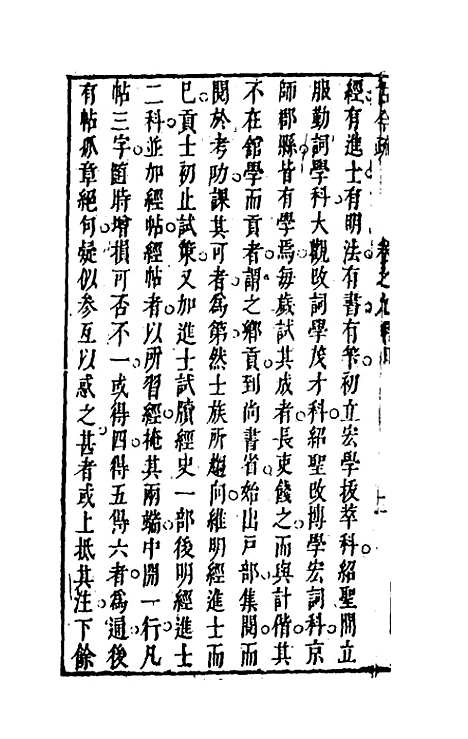 古今疏 卷之九
經有進士有明法有書有筭初立宏學拔萃科紹聖間立
服勤詞學科大觀改詞學茂才科紹聖改博學宏詞科京
師郡縣皆有學焉每歲試其成者長吏餞之而與計偕其
不在館學而貢者謂之鄉貢到尚書省始出戸部集閱而
閱於考功課其可者爲第然士族所趨向維明經進士而
已貢士初止試策又加進士試牘經史一部後明經進士
二科並加經帖經帖者以所習經掩其兩端中開一行凡
帖三字隨時增損可否不一或得四得五得六者爲通後
有帖孤章絕句疑似參互以惑之甚者或上抵其注下餘